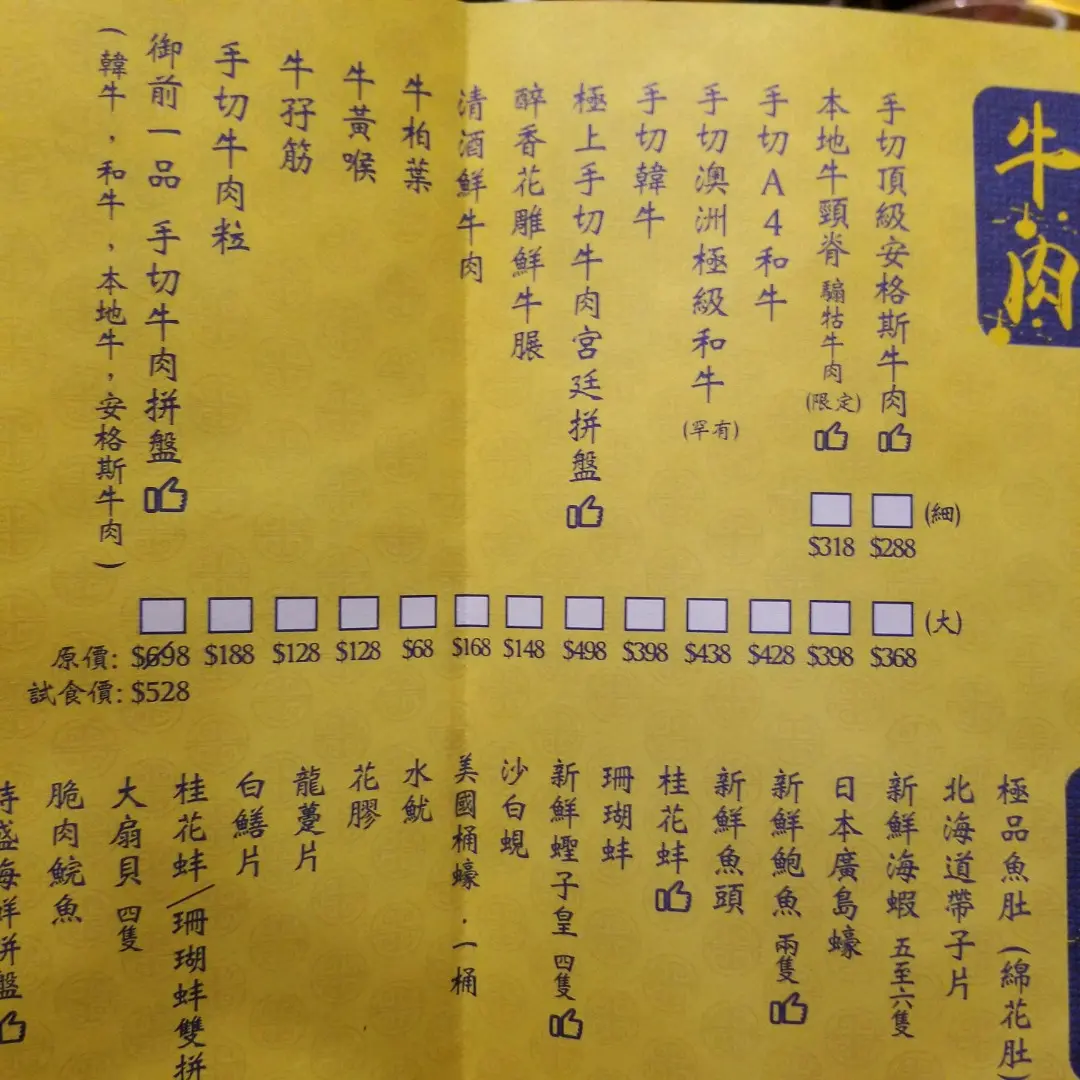 牛肉
手切頂級安格斯牛肉
本地牛頸脊 騸牯牛肉 (限定)
手切A4和牛
手切澳洲極級和牛 (罕有)
手切韓牛
極上手切牛肉宮廷拼盤
醉香花雕鮮牛𦟌
清酒鮮牛肉
牛柏葉
牛黃喉
牛孖筋
手切牛肉粒
御前一品 手切牛肉拼盤
(韓牛,和牛,本地牛,安格斯牛肉)
(細)
$288
$318
(大)
$368
$398
$428
$438
$398
$498
$148
$168
$68
$128
$128
$188
原價: $698
試食價: $528
極品魚肚 (綿花肚)
北海道帶子片
新鮮海蝦 五至六隻
日本廣島蠔
新鮮鮑魚 兩隻
新鮮魚頭
桂花蚌
珊瑚蚌
新鮮蟶子皇 四隻
沙白蜆
美國桶蠔.一桶
水魷
花膠
龍躉片
白鱔片
桂花蚌/珊瑚蚌雙拼
大扇貝 四隻
脆肉鯇魚
盛海鮮拼盤